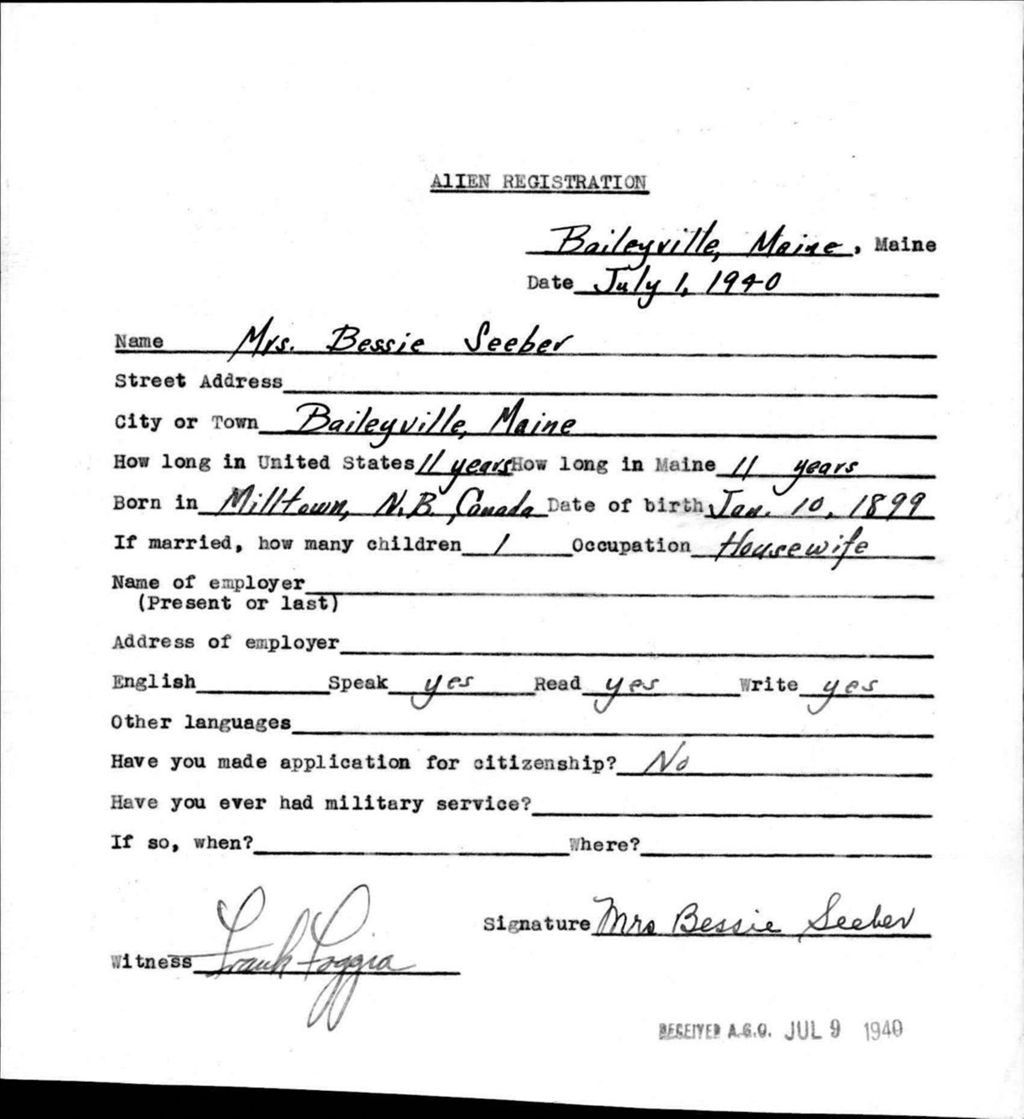 AlIEN REGISTRATION
Baileyville, Maine, Maine
Date July 1, 1940
Name Mrs. Bessie Seeber
Street Address
City or Town Baileyville, Maine
How long in United States 11 years How long in Maine 11 years
Born in Milltown, N.B. Canada Date of birth Jan. 10, 1899
If married, how many children 1 Occupation Housewife
Name of employer
(Present or last)
Address of employer
English Speak yes Read yes Write yes
Other languages
Have you made application for citizenship? No
Have you ever had military service?
If so, when? Where?
Signature Mrs Bessie Seeber
Witness Frank Foggia
RECEIVED A.G.O. JUL 9 1940